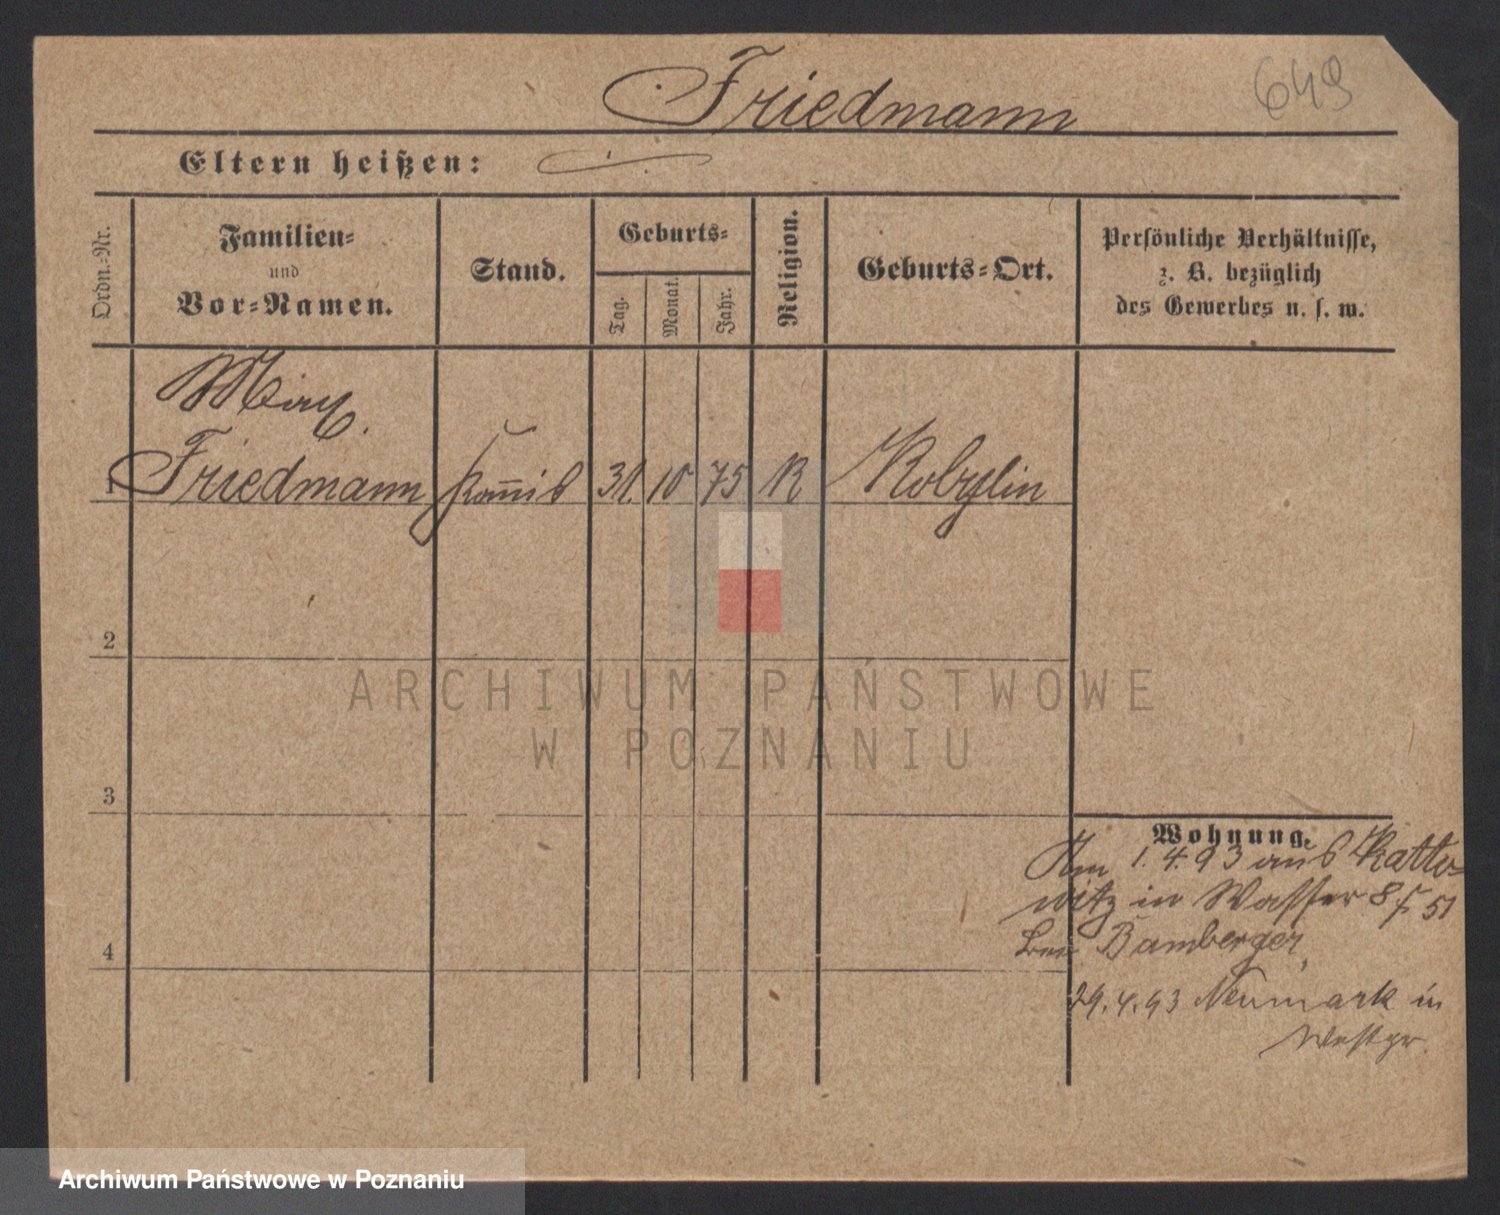 Friedmann
649
Eltern heißen:
Ordn.-Nr.
Familien-
und
Vor-Namen.
Stand.
Geburts-
Tag.
Monat.
Jahr.
Religion.
Geburts-Ort.
Persönliche Verhältnisse,
z. B. bezüglich
des Gewerbes u. s. w.
1
Friedmann Kom̅is 31. 10 75 Kobylin
2
3
4
Wohnung.
Am 1.4.93 aus Katto-
witz in Wasser 8/ 51
bei Bamberger,
29.4.93 Neumark in
Westpr.
ARCHIWUM PAŃSTWOWE
W POZNANIU
Archiwum Państwowe w Poznaniu